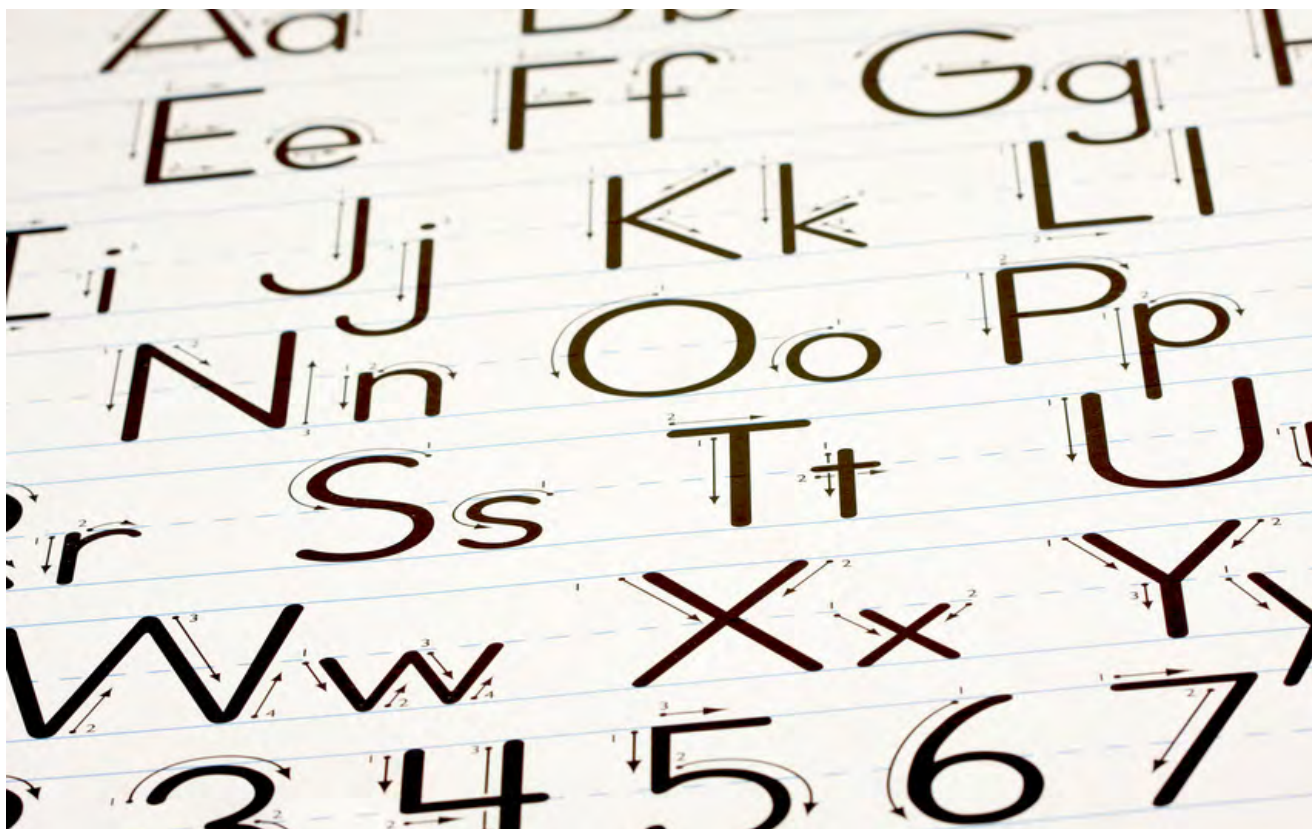 Aa Bb
Ee Ff Gg H
Ii Jj Kk Ll
Nn Oo Pp
r Ss Tt U
Ww Xx Y
3 4 5 6 7